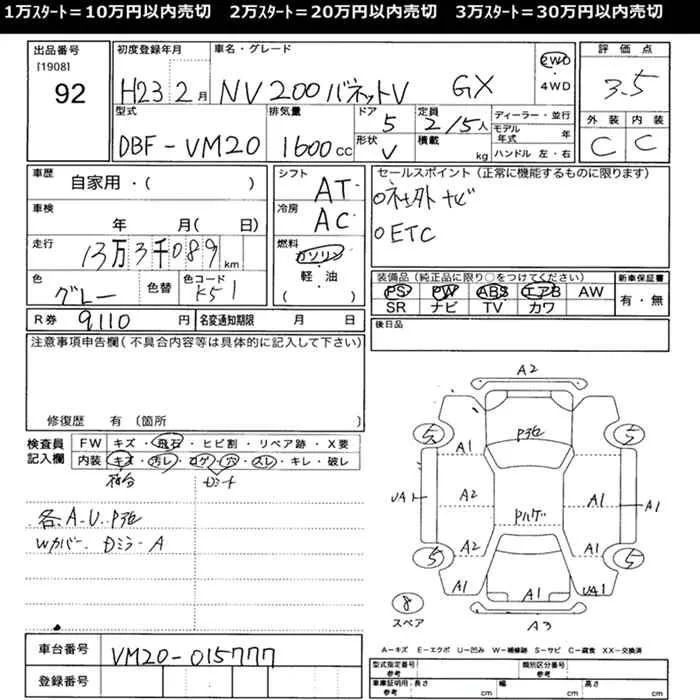 1万ｽﾀｰﾄ＝10万円以内売切　2万ｽﾀｰﾄ＝20万円以内売切　3万ｽﾀｰﾄ＝30万円以内売切
出品番号 [1908] 92
初度登録年月 H23 2月
車名・グレード NV200バネットV GX
2WD ・ 4WD
評価点 3.5
型式 DBF-VM20
排気量 1600cc
ドア 5
形状 V
定員 2/5人
積載 kg
ディーラー・並行
モデル年式 年
ハンドル 左・右
外装 C
内装 C
車歴 自家用・( )
シフト AT
セールスポイント（正常に機能するものに限ります）
車検 年 月( 日)
冷房 AC
○社外ナビ
○ETC
走行 13万3千089km
燃料 ガソリン ・ 軽・油 ( )
色 グレー
色替
色コード K51
装備品（純正品に限り○をつけてください）
PS PW ABS エアB AW
SR ナビ TV カワ
新車保証書 有・無
R券 9110円
名変通知期限 月 日
後日品
注意事項申告欄（不具合内容等は具体的に記入して下さい）
修復歴 有（箇所 ）
検査員記入欄
FW キズ・飛石・ヒビ割・リペア跡・X要
内装 キズ・汚レ・コゲ・穴・スレ・キレ・破レ
荷台
各A.U.P凹
Wカバー Dミラ-A
A2
5
A1
P凹
5
UA1
A2
A1
A1
Pハゲ
5
A2
A1
5
A1
A1
UA1
8
スペア
A3
A-キズ E-エクボ U-凹み W-補修跡 S-サビ C-腐食 XX-交換済
車台番号 VM20-015777
登録番号
型式指定番号 参考
類別区分番号 参考
車庫証明用 参考 長さ cm 幅 cm 高さ cm